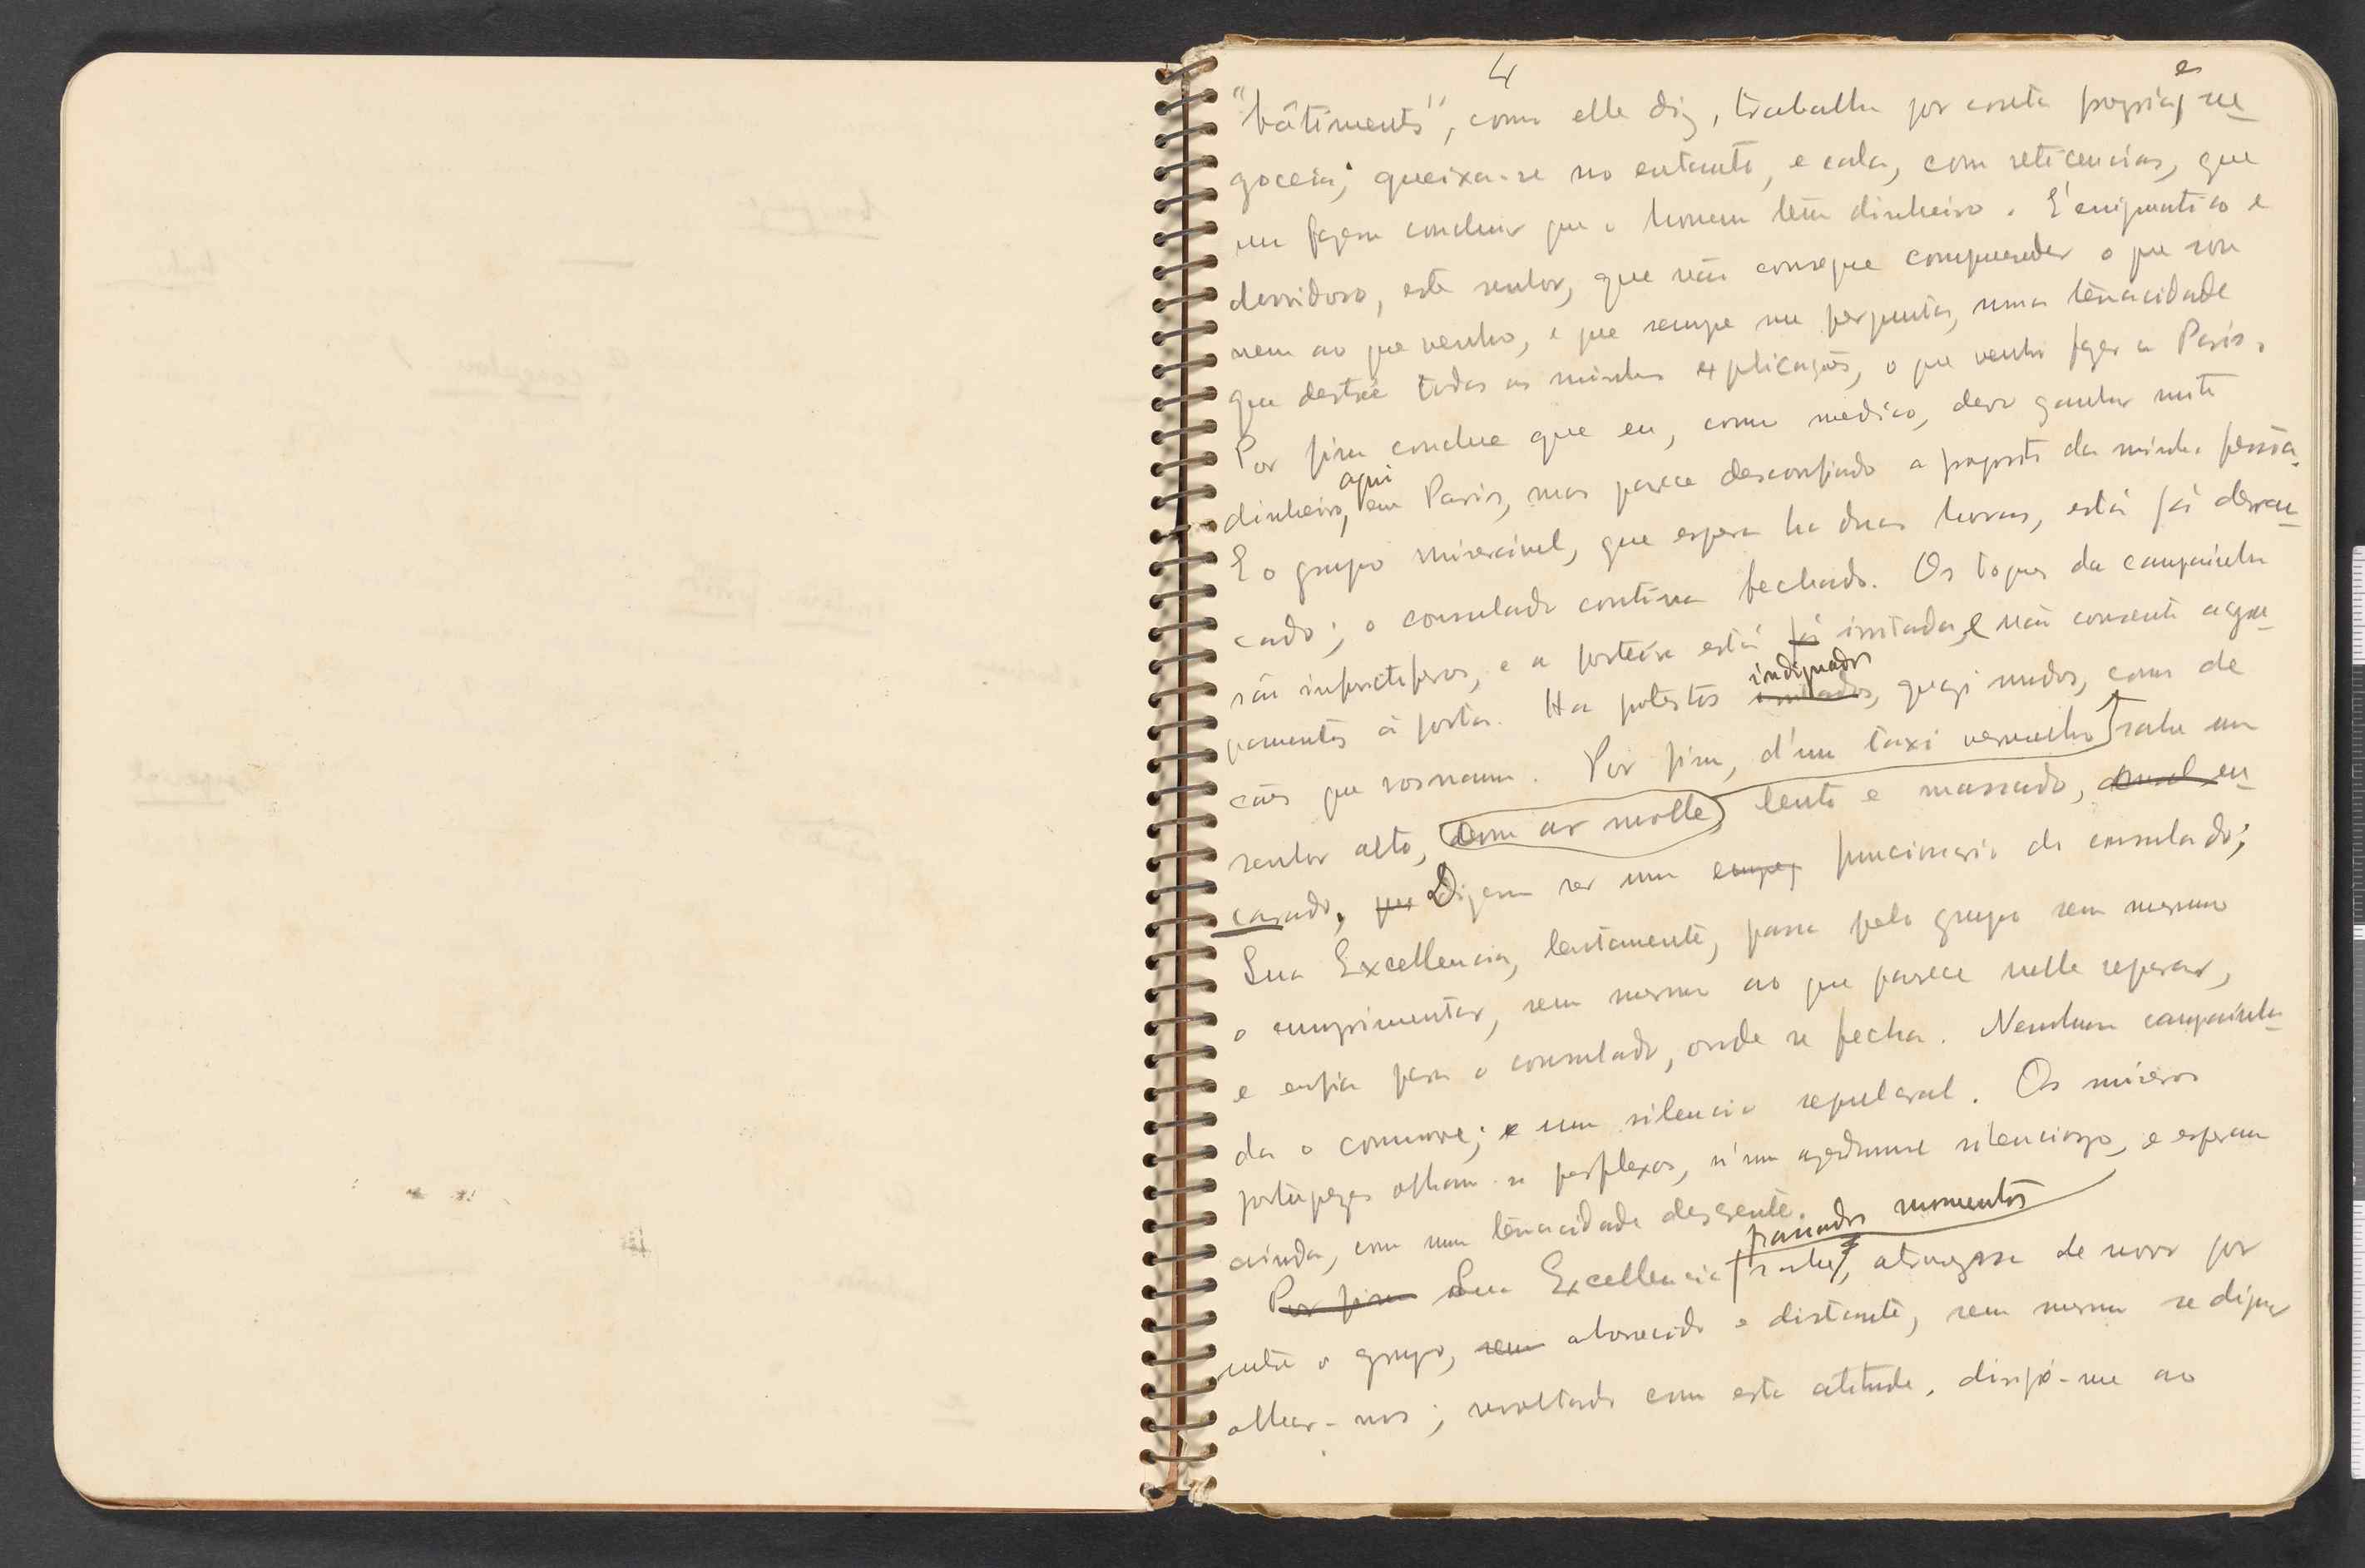 4
"bâtiments", como elle diz, trabalha por conta propria, e ne-
goceia; queixa-se no entanto, e cala, com reticencias, que
me fazem concluir que o homem tem dinheiro. É enigmatico e
desvidoso, este senhor, que não consegue comprehender o que sou
nem ao que venho, e que sempre me pergunta, numa tenacidade
que destroe todas as minhas explicações, o que venho fazer a Paris.
Por fim conclue que eu, como medico, devo ganhar muito
dinheiro, aqui em Paris, mas parece desconfiado a proposito da minha pessoa.
E o grupo miseravel, que espera ha duas horas, está já desan-
cado; o consulado continua fechado. Os toques da campainha
são infructiferos, e a porteira está já irritada, e não consente agru-
pamentos á porta. Ha protestos irritados, indignados quazi mudos, como de
cães que rosnam. Por fim, d'um taxi vermelho sahe um
senhor alto, com ar molle, lento e massado, en-
casado, que Dizem ser um empreg funcionario do consulado;
Sua Excellencia, lentamente, passa pelo grupo sem mesmo
o cumprimentar, sem mesmo ao que parece nelle reparar,
e enfia para o consulado, onde se fecha. Nenhuma campainha-
da o commove; e um silencio sepulcral. Os miseros
portuguezes olham-se perplexos, n'um azedume silenciozo, e esperam
ainda, com uma tenacidade descrente.
Por fim Sua Excellencia passados momentos sahe, atravessa de novo por
entre o grupo, sem aborrecido e distante, sem mesmo se dignar
olhar-nos; revoltado com esta atitude, dirijo-me ao